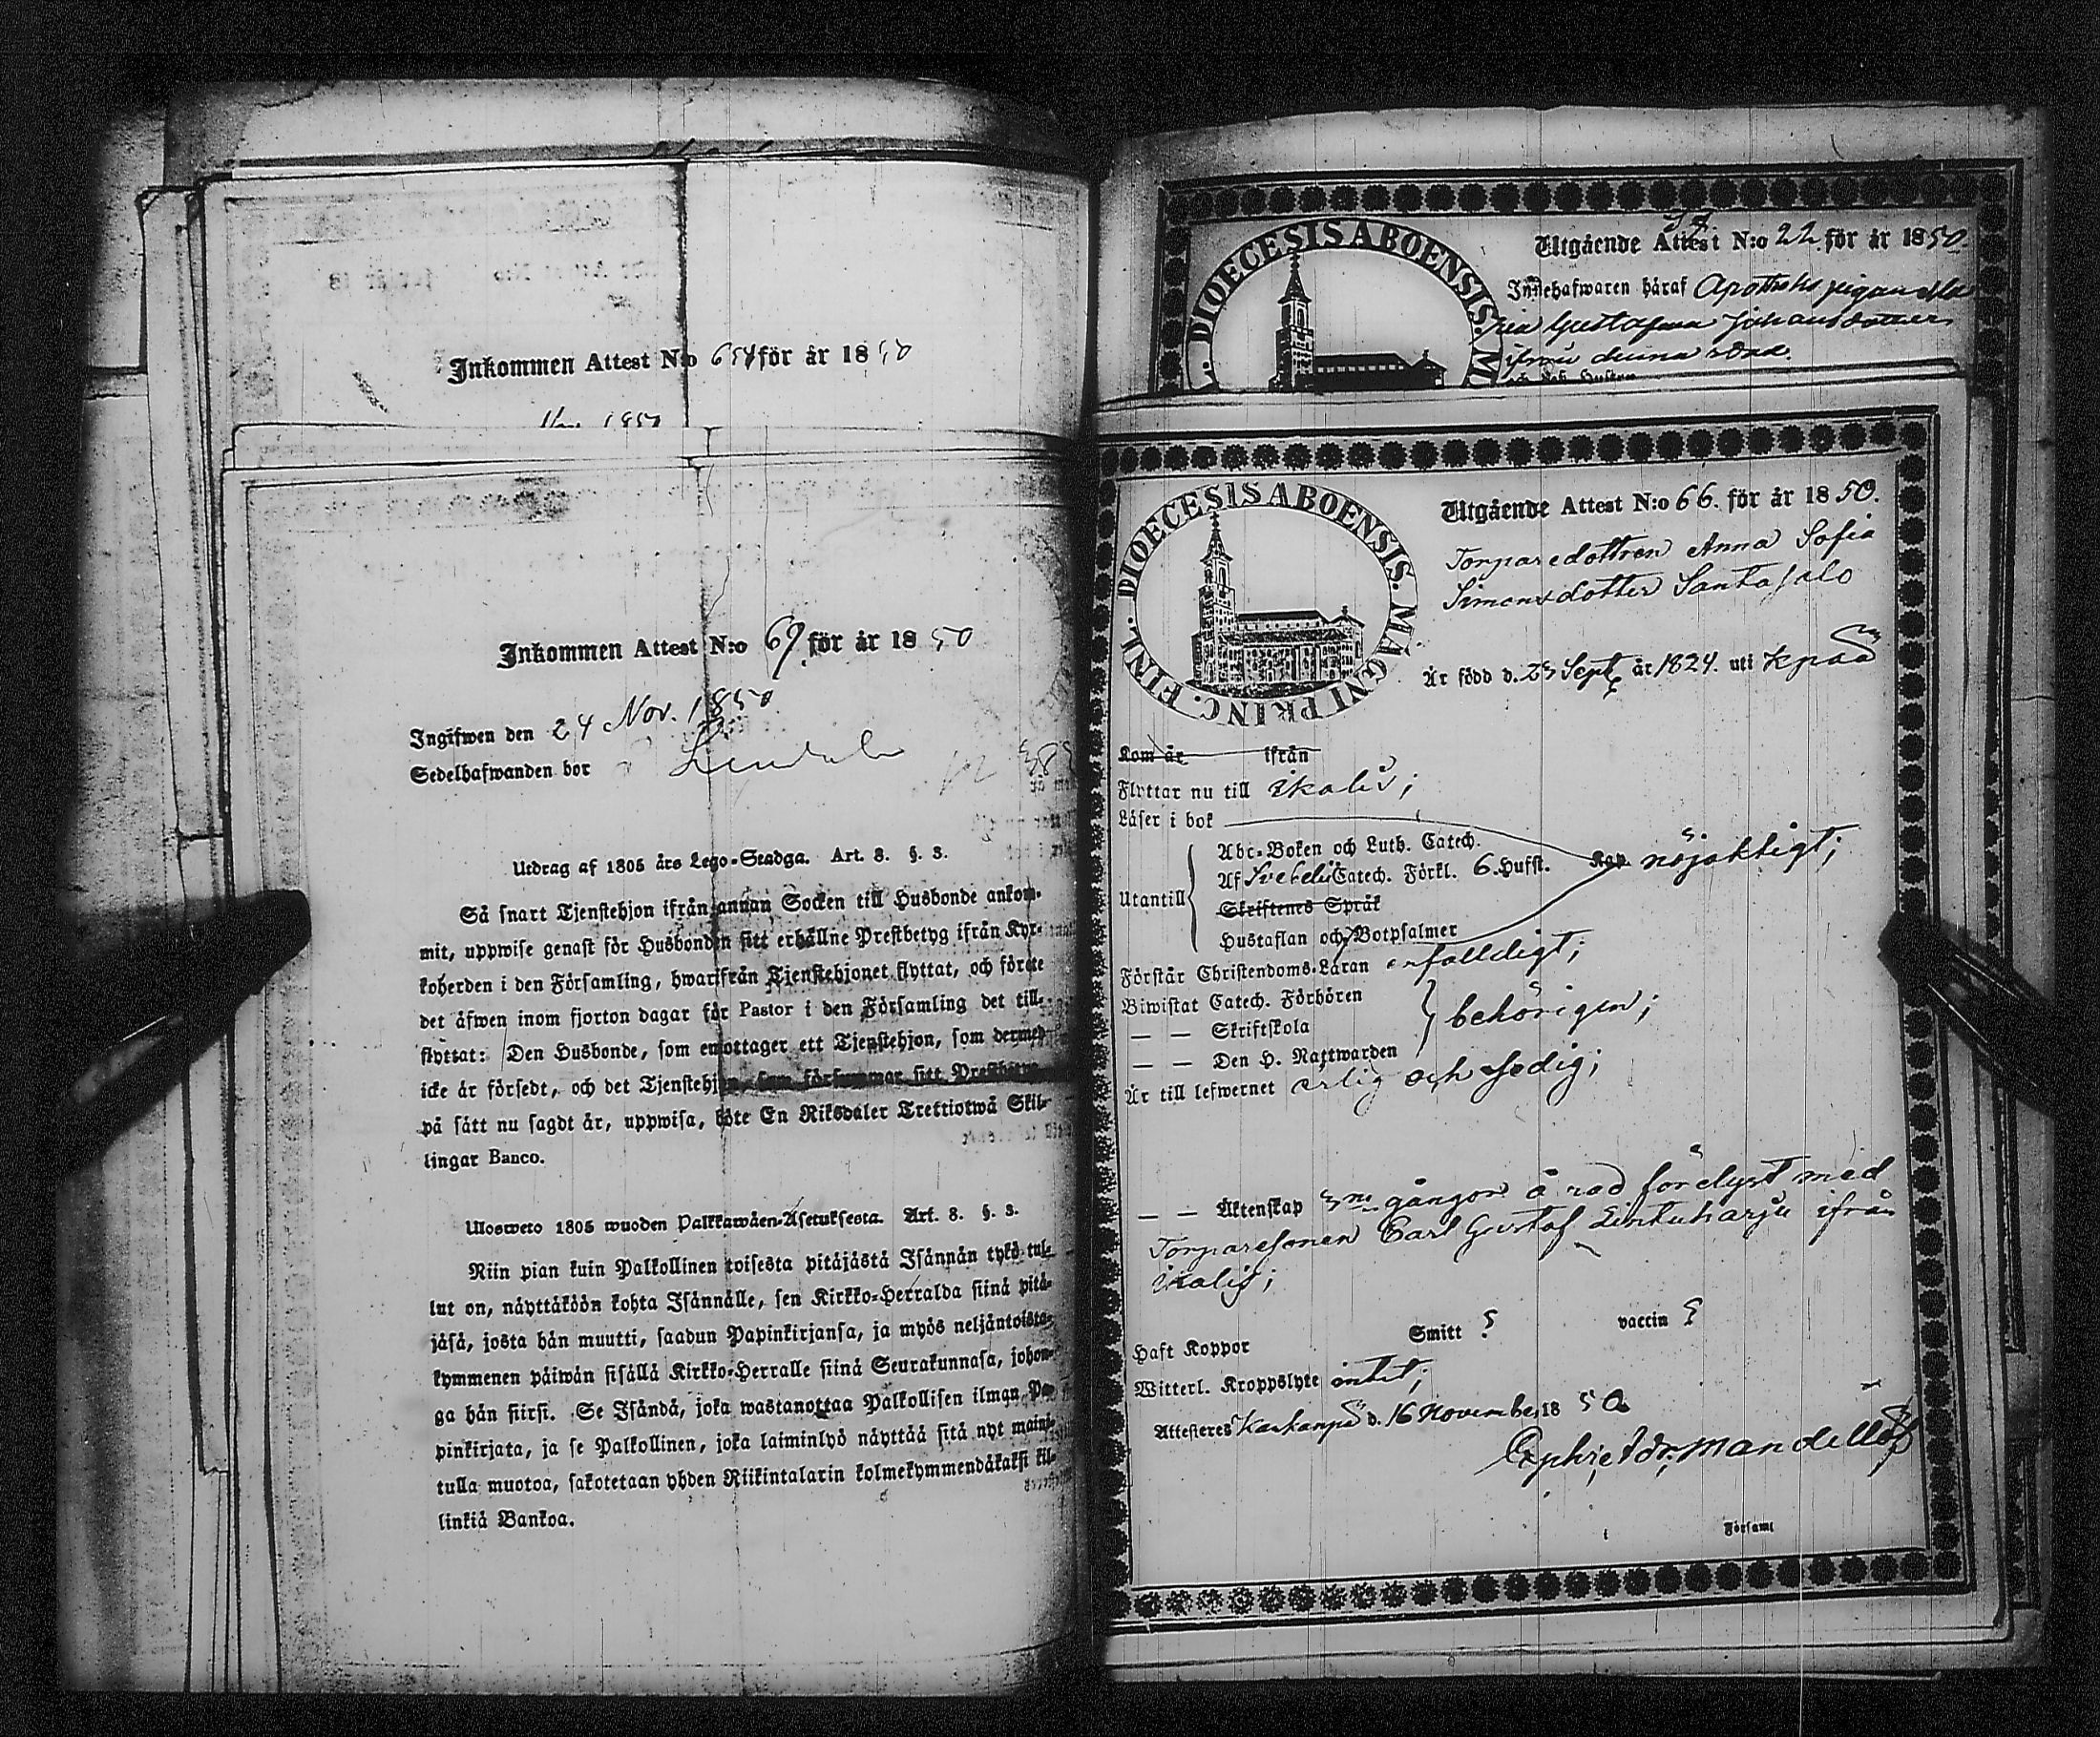 Inkommen Attest N:o 65 för år 1850
Nov. 1850
Inkommen Attest N:o 69 för år 1850
Ingifwen den 24 Nov. 1850
Sedelhafwanden bor
Utdrag af 1805 års Lego-Stadga. Art. 8. §. 3.
Så snart Tjenstehjon ifrån annan Socken till Husbonde ankom-
mit, uppwise genast för Husbonden sitt erhållne Prestbetyg ifrån Kyr-
koherden i den Församling, hwarifrån Tjenstehjonet flyttat, och förete
det äfwen inom fjorton dagar för Pastor i den Församling det till-
flyttat: Den Husbonde, som emottager ett Tjenstehjon, som dermed
icke är försedt, och det Tjenstehjon, som försummar sitt Prestbetyg
på sätt nu sagdt är, uppwisa, böte En Riksdaler Trettiotwå Skil-
lingar Banco.
Ulosweto 1805 wuoden Palkkawäen-Asetuksesta. Art. 8. §. 3.
Niin pian kuin Palkollinen toisesta pitäjästä Isännän tykö tul-
lut on, näyttäköön kohta Isännälle, sen Kirkko-Herralda siinä pitä-
jäsä, josta hän muutti, saadun Papinkirjansa, ja myös neljäntoista-
kymmenen päiwän sisällä Kirkko-Herralle siinä Seurakunnasa, johon-
ga hän siirsi. Se Isändä, joka wastanottaa Palkollisen ilman Pa-
pinkirjata, ja se Palkollinen, joka laiminlyö näyttää sitä nyt maini-
tulla muotoa, sakotetaan yhden Riikintalarin kolmekymmendäkaksi kil-
linkiä Bankoa.
DIOECESIS ABOENSIS. M
Utgående Attest N:o 22 för år 1850.
Innehafwaren häraf Apotheks pigan
Gustafwa Johansdotter
ifrån denna stad
och dess Hustru
DIOECESIS ABOENSIS. MAGNI PRINC. FINL.
Utgående Attest N:o 66. för år 1850.
Torparedottren Anna Sofia
Simonsdotter Santasalo
Är född d. 23 Sept. år 1824. uti
Kom år ifrån
Flyttar nu till Ikalis;
Läser i bok
Utantill
Abc-Boken och Luth. Catech.
Af Svebelii Catech. Förkl. 6. Hufst. Kap. nöjaktigt;
Skriftenes Språk
Hustaflan och Botpsalmer
Förstår Christendoms-Läran enfalldigt;
Biwistat Catech. Förhören
— — Skriftskola behörigen;
— — Den H. Nattwarden
Är till lefwernet ärlig och sedig;
— — Äktenskap 3ne gångor å rad förelyst med
Torparesonen Carl Gustaf Lintuharju ifrån
Ikalis;
Haft Koppor Smitt ? vaccin ?
Witterl. Kroppslyte intet;
Attesteras d. 16 November 1850.
Mandellöf
Församl